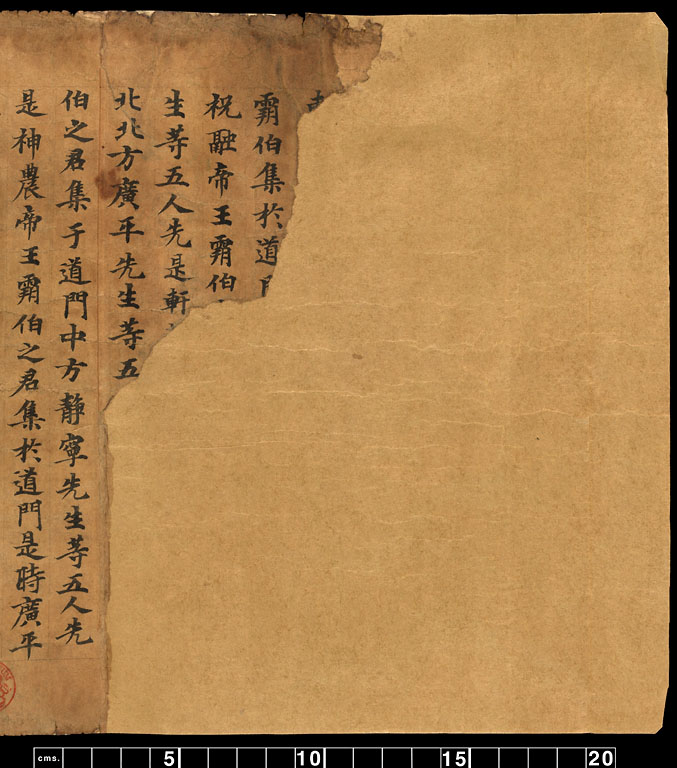 霸伯集於道
祝融帝王霸伯
生䓁五人先是軒
北北方廣平先生䓁五
伯之君集于道門中方靜寧先生䓁五人先
是神農帝王霸伯之君集於道門是時廣平
cms. 5 10 15 20